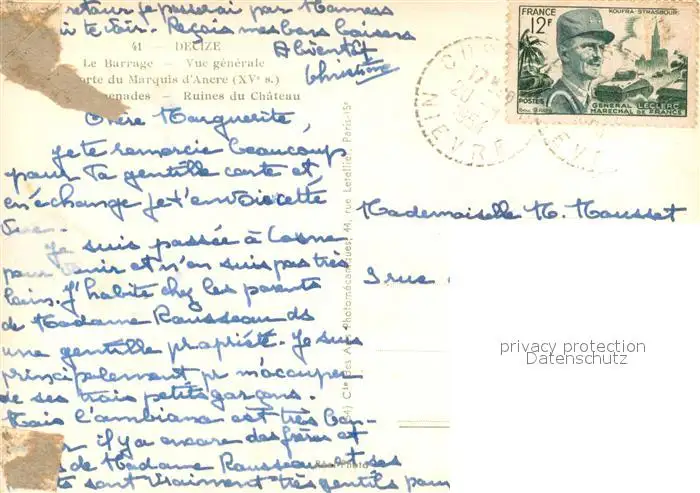 retour je passerai par Mamess
te voir. Reçois mes bons baisers
A bientôt
Christiane
41 - DECIZE
Le Barrage - Vue générale
Porte du Marquis d'Ancre (XVe s.)
Promenades - Ruines du Château
Chère Marguerite,
Je te remercie beaucoup
pour ta gentille carte et,
en échange je t'envoie cette
vue.
Je suis passée à Cosne
pour venir et n'en suis pas très
loin. J'habite chez les parents
de Madame Rousseau ds
une gentille propriété. Je suis
principalement pr m'occuper
de ses trois petits garçons.
Mais l'ambiance est très bon-
il y a encore des frères et
de Madame Rousseau et ses
sont vraiment très gentils pour
Cie des Arts Photomécaniques, 44, rue Letellier, Paris-15e
Réel-Photo
FRANCE
12F
KOUFRA-STRASBOURG
POSTES
GENERAL LECLERC
MARECHAL DE FRANCE
NIEVRE
Mademoiselle M. Mousset
3 rue
privacy protection
Datenschutz